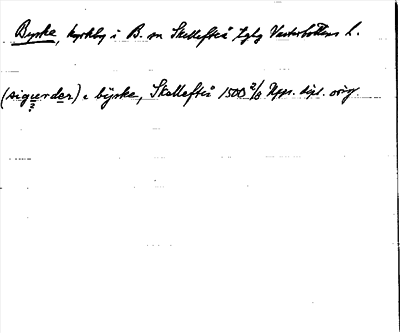 Byske, kyrkby i B. sn Skellefteå tglg Västerbottens l.
(sigurder) i byske, Skellefteå 1500 2/8 Upps. dipl. orig.
?